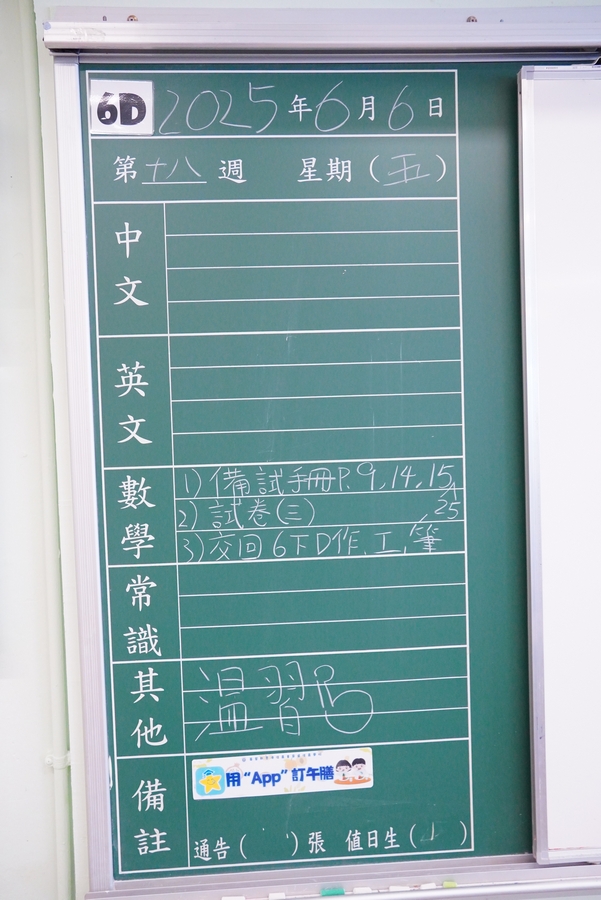 6D 2025年6月6日
第十八週 星期(五)
中文
英文
數學
1) 備試手冊P.9,14,15,
25
2) 試卷(三)
3) 交回6下D作、工、筆
常識
其他
溫習
備註
用“App”訂午膳
通告( )張 值日生( )